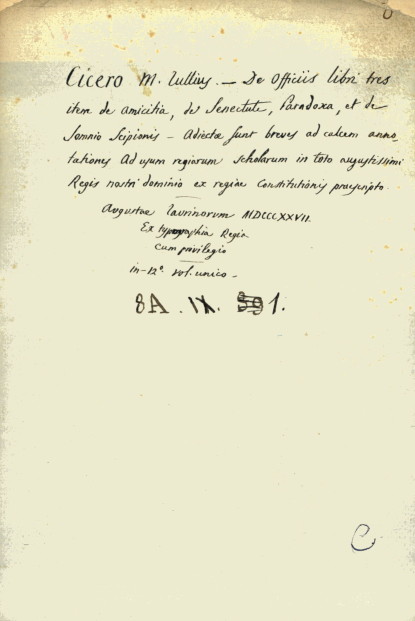 Cicero M. Tullius. — De Officiis libri tres
item de amicitia, de Senectute, Paradoxa, et de
Somnio Scipionis — Adiectæ sunt breves ad calcem anno-
tationes Ad usum regiarum scholarum in toto augustissimi
Regis nostri dominio ex regiae Constitutionis praescripto.
Augustae Taurinorum MDCCCXXVII.
Ex typographia Regia
cum privilegio
in-12º. vol. unico —
8A . IX . 1.
C